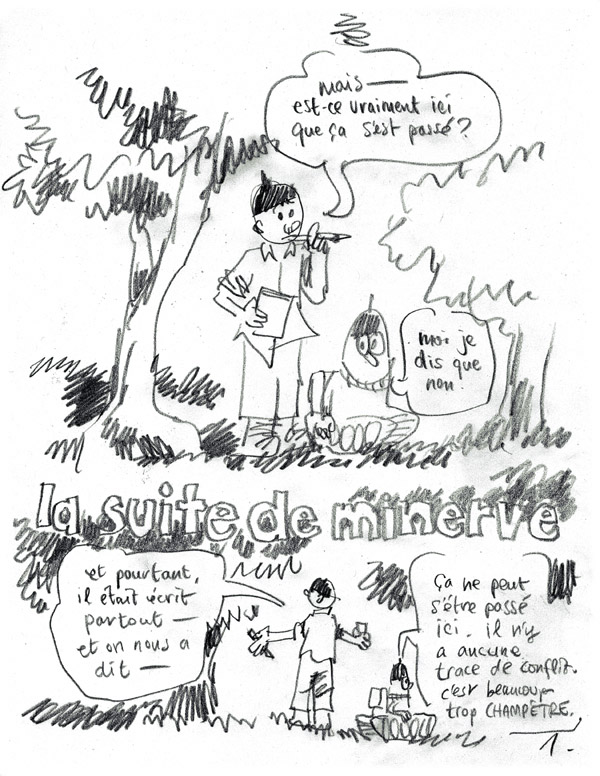 mais —
est-ce vraiment ici
que ça s'est passé ?
moi je
dis que
non.
la suite de minerve
et pourtant,
il était écrit
partout —
et on nous a
dit —
Ça ne peut
s'être passé
ici. il n'y
a aucune
trace de conflit.
c'est beaucoup
trop CHAMPÊTRE.
1.